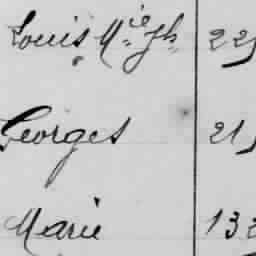 Louis Mie Jh 22
Georges 21
Marie 132